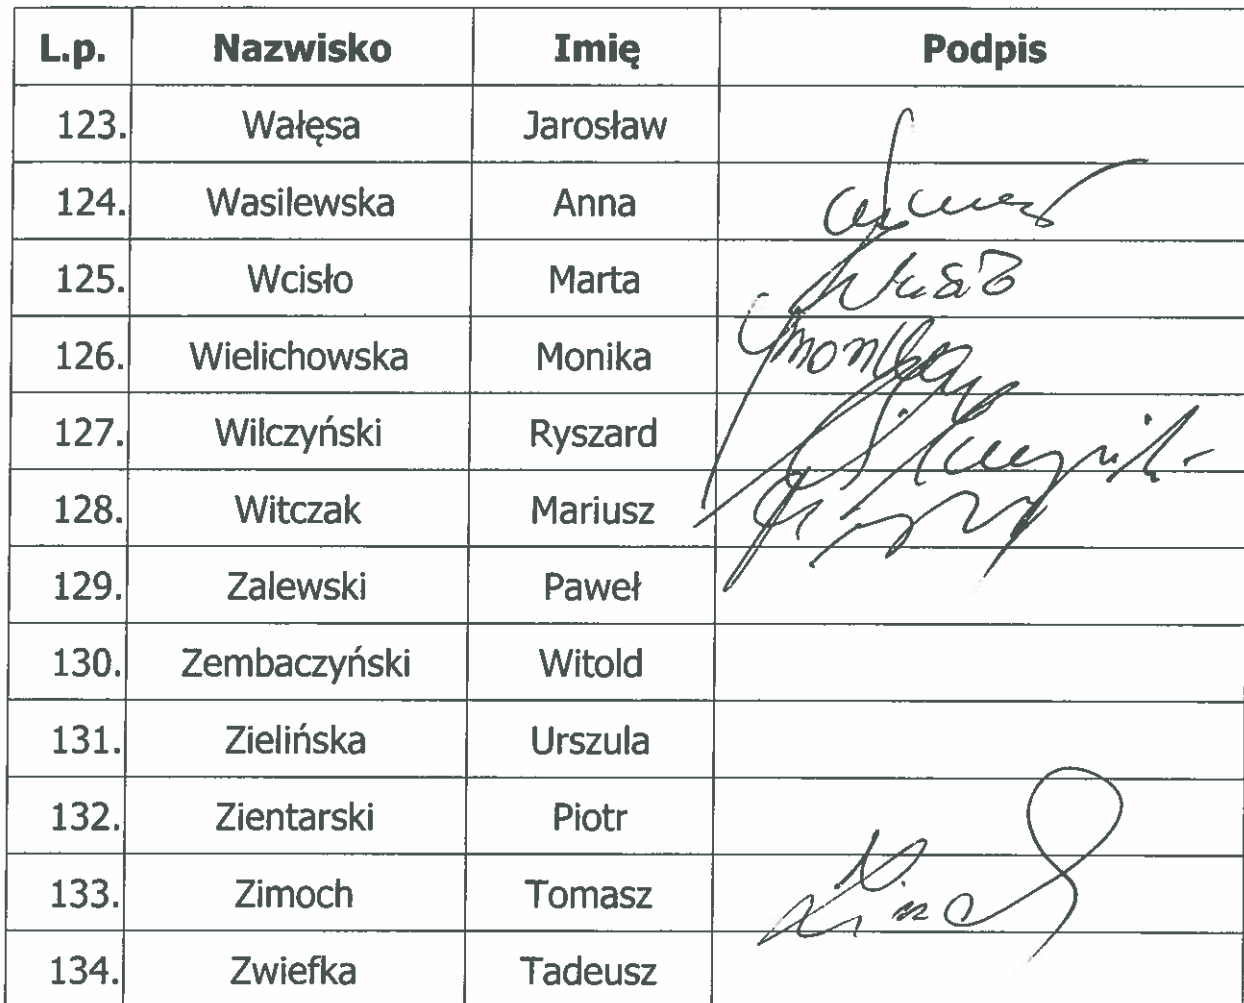 L.p. Nazwisko Imię Podpis
123. Wałęsa Jarosław
124. Wasilewska Anna
125. Wcisło Marta
126. Wielichowska Monika
127. Wilczyński Ryszard
128. Witczak Mariusz
129. Zalewski Paweł
130. Zembaczyński Witold
131. Zielińska Urszula
132. Zientarski Piotr
133. Zimoch Tomasz
134. Zwiefka Tadeusz